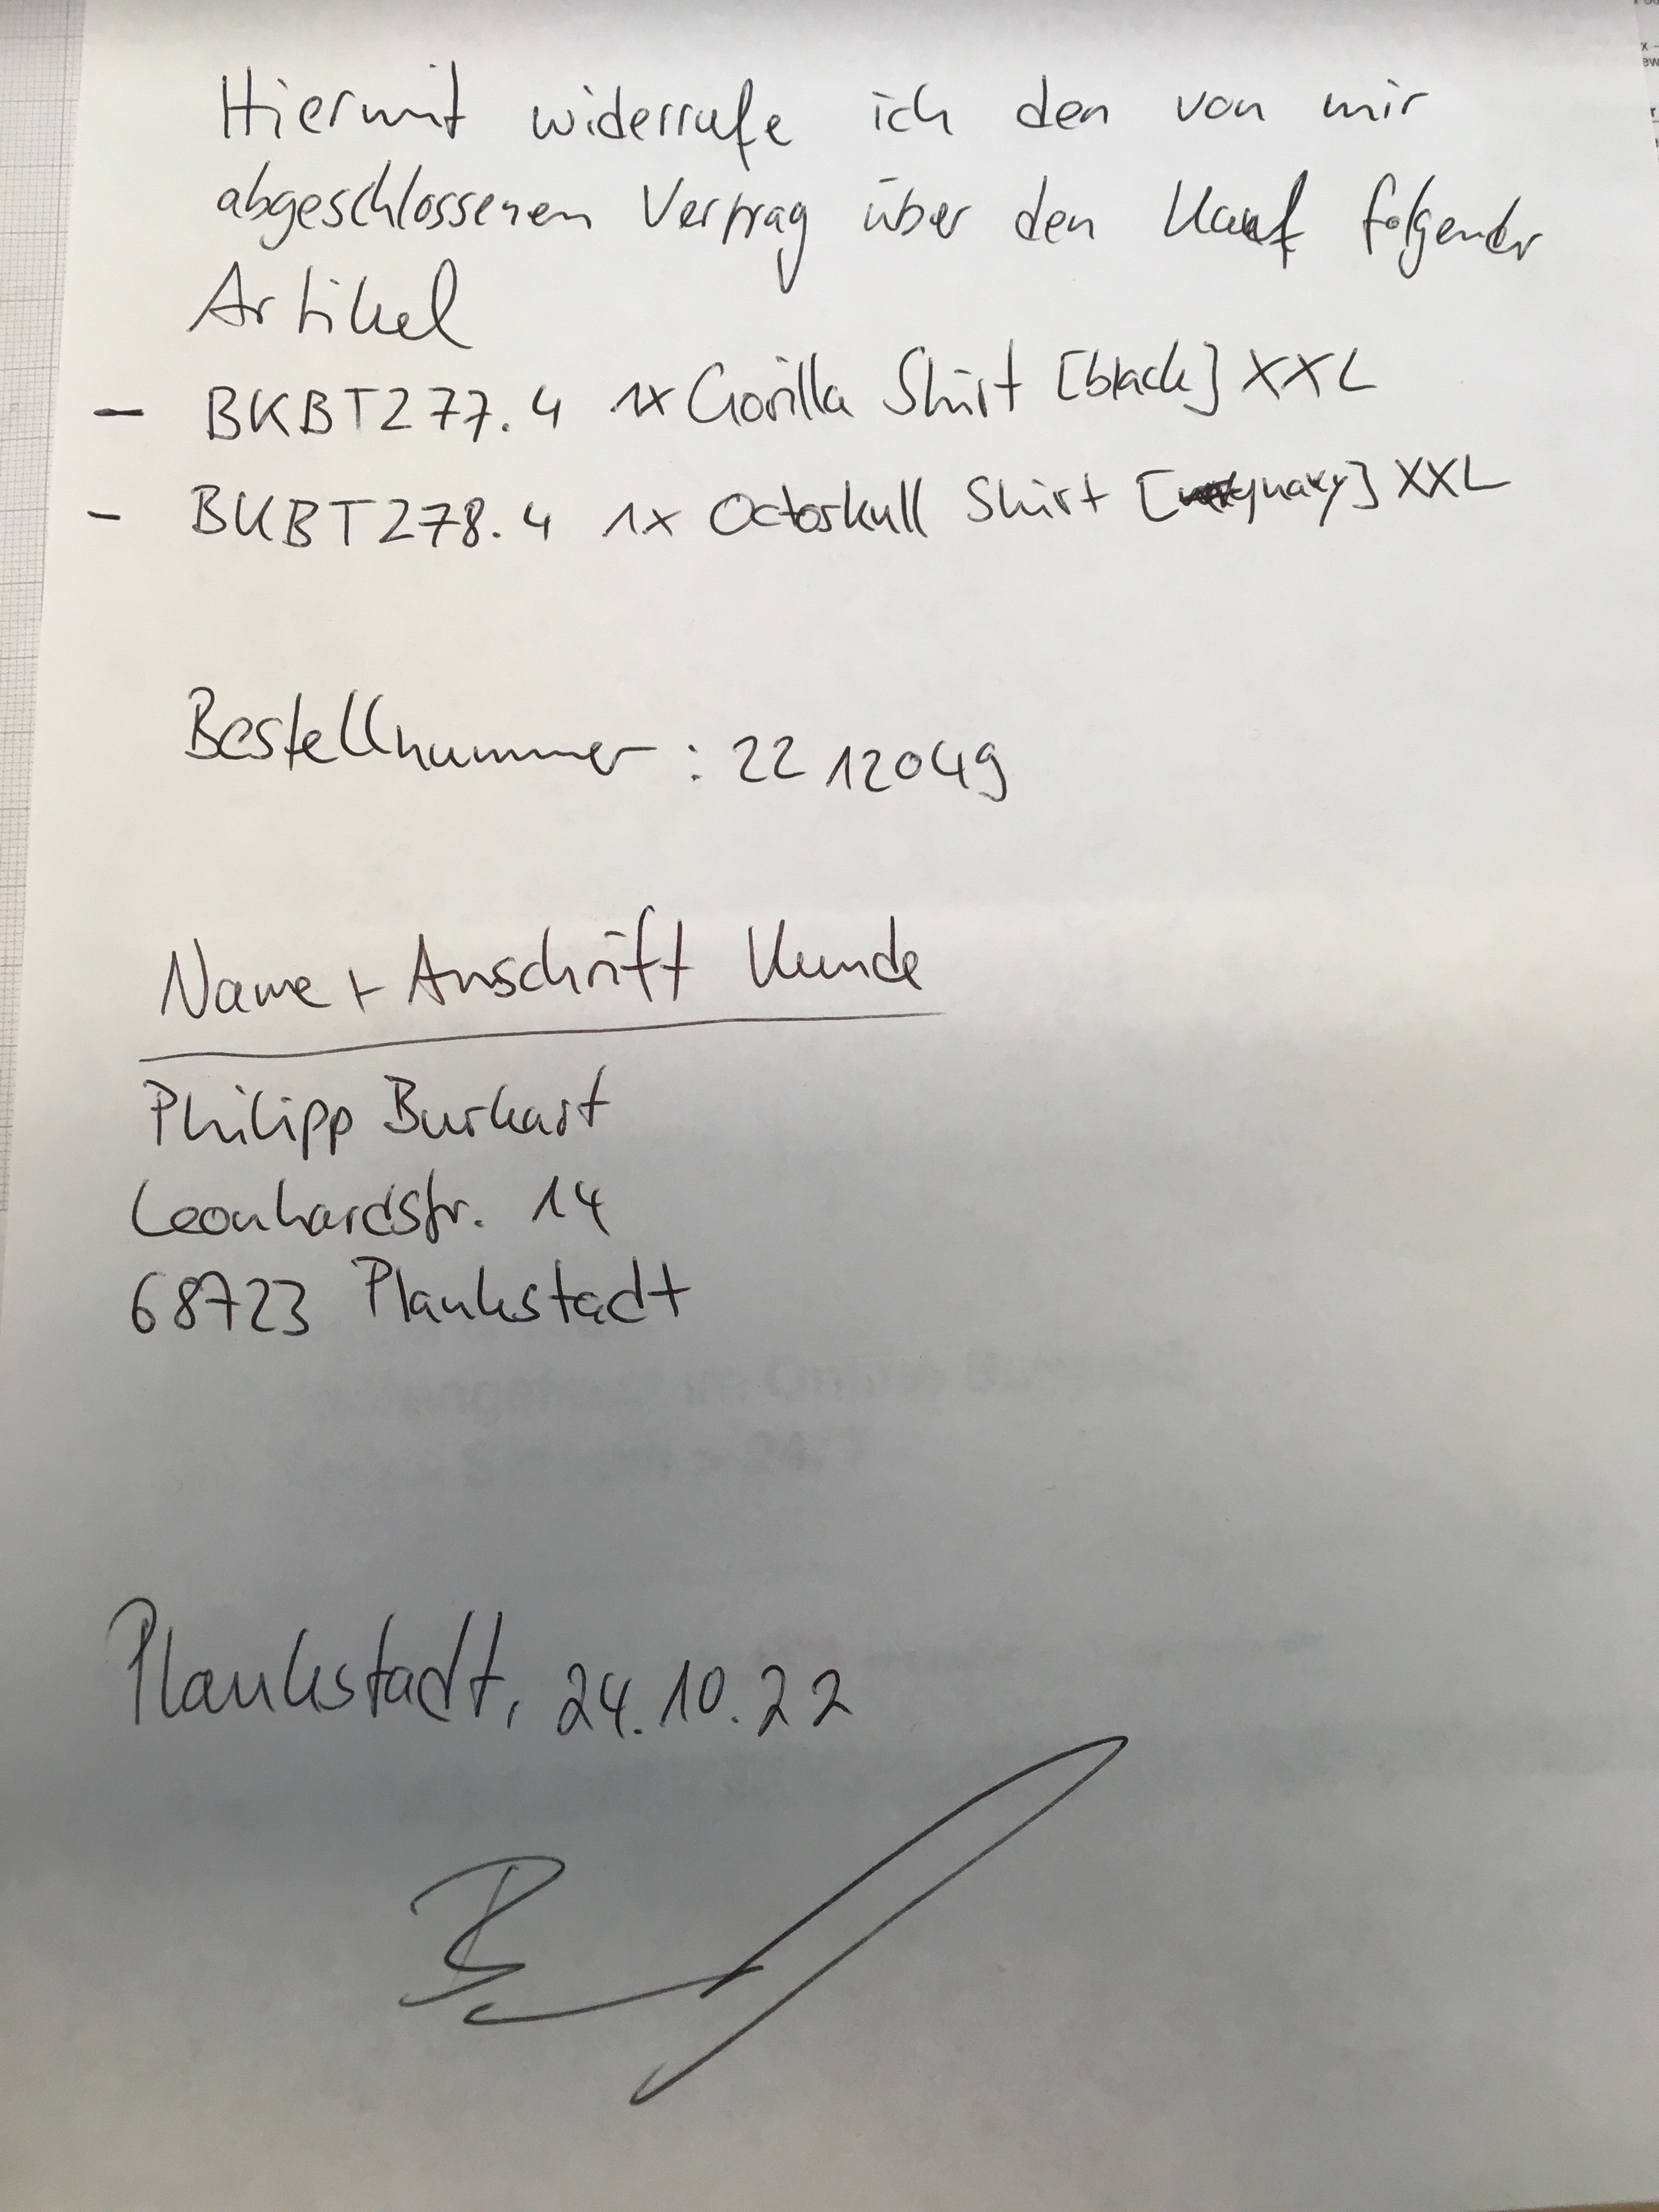 Hiermit widerrufe ich den von mir
abgeschlossenen Vertrag über den Kauf folgender
Artikel
- BKBT277.4 1x Gorilla Shirt [black] XXL
- BKBT278.4 1x Octoskull Shirt [navy] XXL
Bestellnummer: 2212049
Name + Anschrift Kunde
Philipp Burkart
Leonhardstr. 14
68723 Plankstadt
Plankstadt, 24.10.22